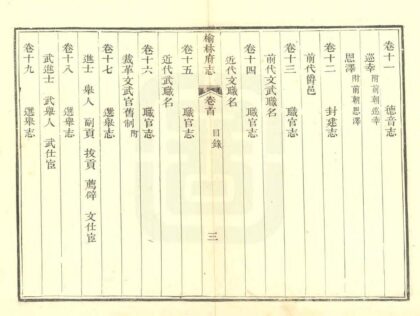 卷十一　德音志
巡幸附前朝巡幸
恩澤附前朝恩澤
卷十二　封建志
前代爵邑
卷十三　職官志
前代文武職名
卷十四　職官志
近代文職名
榆林府志　卷首　目錄　三
卷十五　職官志
近代武職名
卷十六　職官志
裁革文武官舊制附
卷十七　選舉志
進士　舉人　副貢　拔貢　薦辟　文仕宦
卷十八　選舉志
武進士　武舉人　武仕宦
卷十九　選舉志